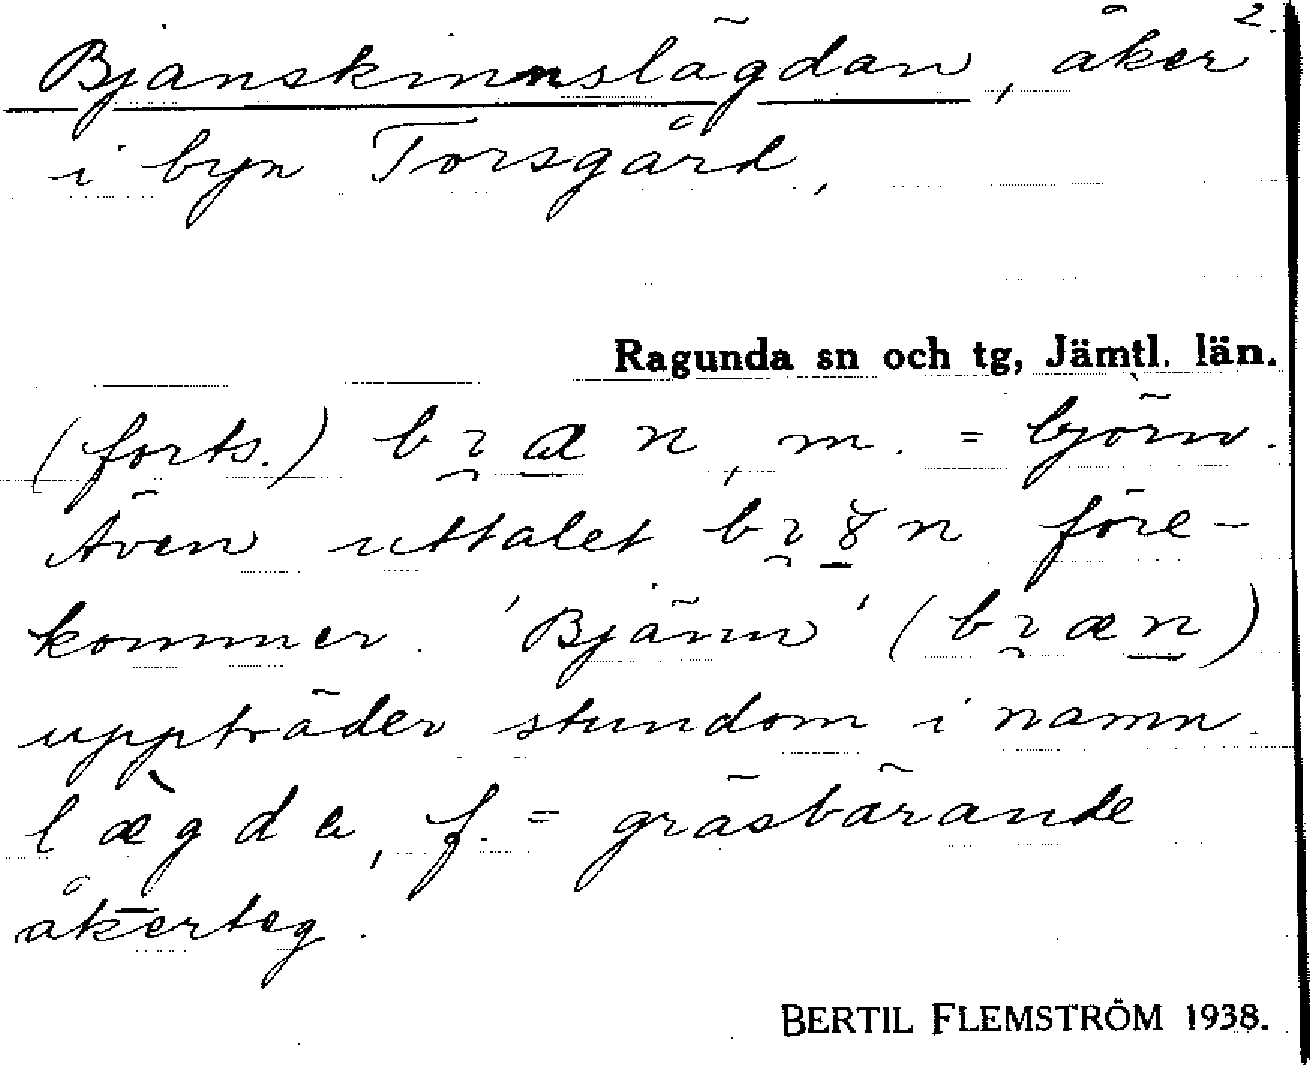 2.
Bjanskinnslägdan, åker
i byn Torsgård,
Ragunda sn och tg, Jämtl. län.
(forts.) bɿan, m. = björn.
Även uttalet före-
kommer. 'Bjänn' (bɿæn)
uppträder stundom i namn.
lægda, f. = gräsbärande
åkerteg.
BERTIL FLEMSTRÖM 1938.